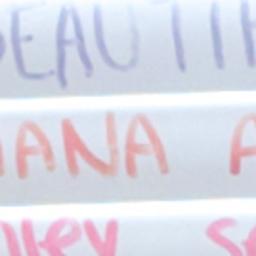 BEAUTIF
IANA A
lley Se